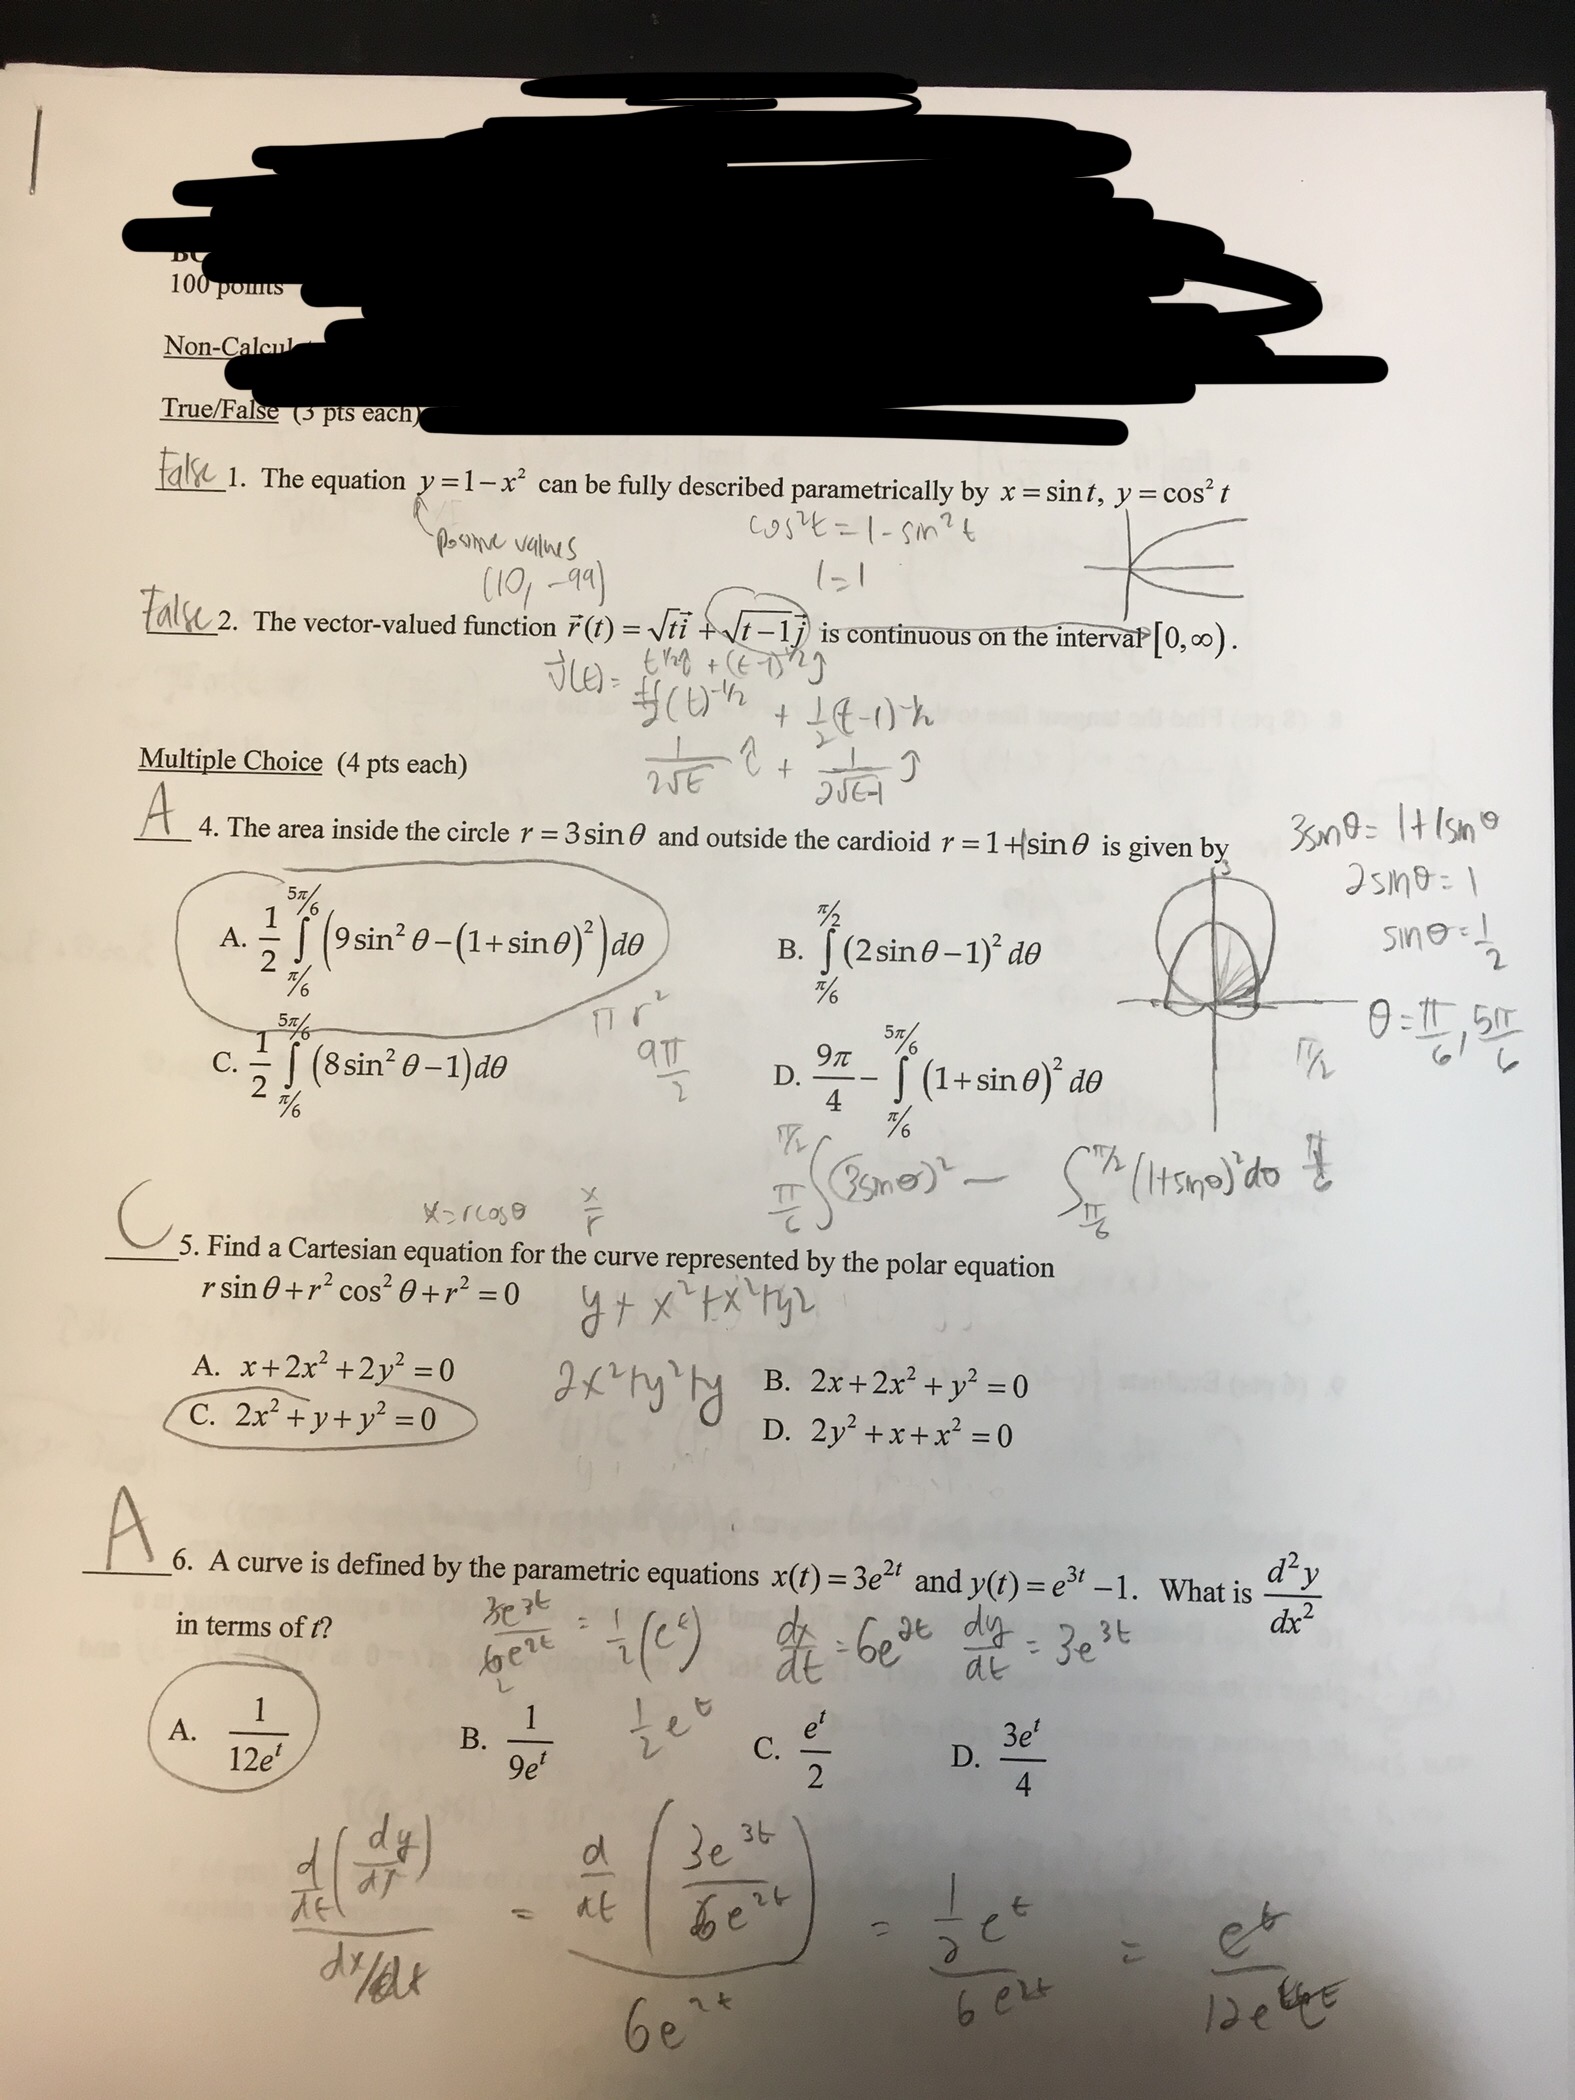 100 points
Non-Calcul
True/False (3 pts each)
False 1. The equation y = 1 − x² can be fully described parametrically by x = sin t, y = cos² t
positive values
cos²t = 1 - sin²t
(10, -99)
1=1
False 2. The vector-valued function r⃗(t) = √t i⃗ + √t−1 j⃗ is continuous on the interval [0,∞).
t^1/2 î + (t-1)^1/2 ĵ
v⃗(t) = ½(t)^-1/2 + ½(t-1)^-½
1/(2√t) î + 1/(2√t-1) ĵ
Multiple Choice (4 pts each)
A 4. The area inside the circle r = 3 sin θ and outside the cardioid r = 1 + 1 sin θ is given by
3sinθ = 1+1sinθ
2sinθ = 1
sinθ = 1/2
θ = π/6, 5π/6
π/2
3
A. 1/2 ∫_{π/6}^{5π/6} (9 sin² θ − (1 + sin θ)²) dθ
B. ∫_{π/6}^{π/2} (2 sin θ − 1)² dθ
πr²
9π/2
C. 1/2 ∫_{π/6}^{5π/6} (8 sin² θ − 1) dθ
D. 9π/4 − ∫_{π/6}^{5π/6} (1 + sin θ)² dθ
∫_{π/6}^{π/2} (3sinθ)² − ∫_{π/6}^{π/2} (1+sinθ)² dθ
x = rcosθ x/r
C 5. Find a Cartesian equation for the curve represented by the polar equation
r sin θ + r² cos² θ + r² = 0
y + x² + x² + y²
A. x + 2x² + 2y² = 0
2x²+y²+y
B. 2x + 2x² + y² = 0
C. 2x² + y + y² = 0
D. 2y² + x + x² = 0
A 6. A curve is defined by the parametric equations x(t) = 3e^2t and y(t) = e^3t − 1. What is d²y/dx²
in terms of t?
3e^3t/6e^2t = ½(e^t)
2
dx/dt = 6e^2t dy/dt = 3e^3t
½e^t
A. 1/12e^t
B. 1/9e^t
C. e^t/2
D. 3e^t/4
d/dt(dy/dx)/(dx/dt) = d/dt(3e^3t/6e^2t)/6e^2t = ½e^t/6e^2t = e^t/12e